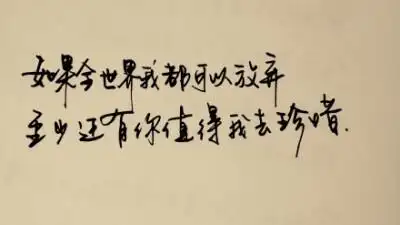 如果全世界我都可以放弃
至少还有你值得我去珍惜.